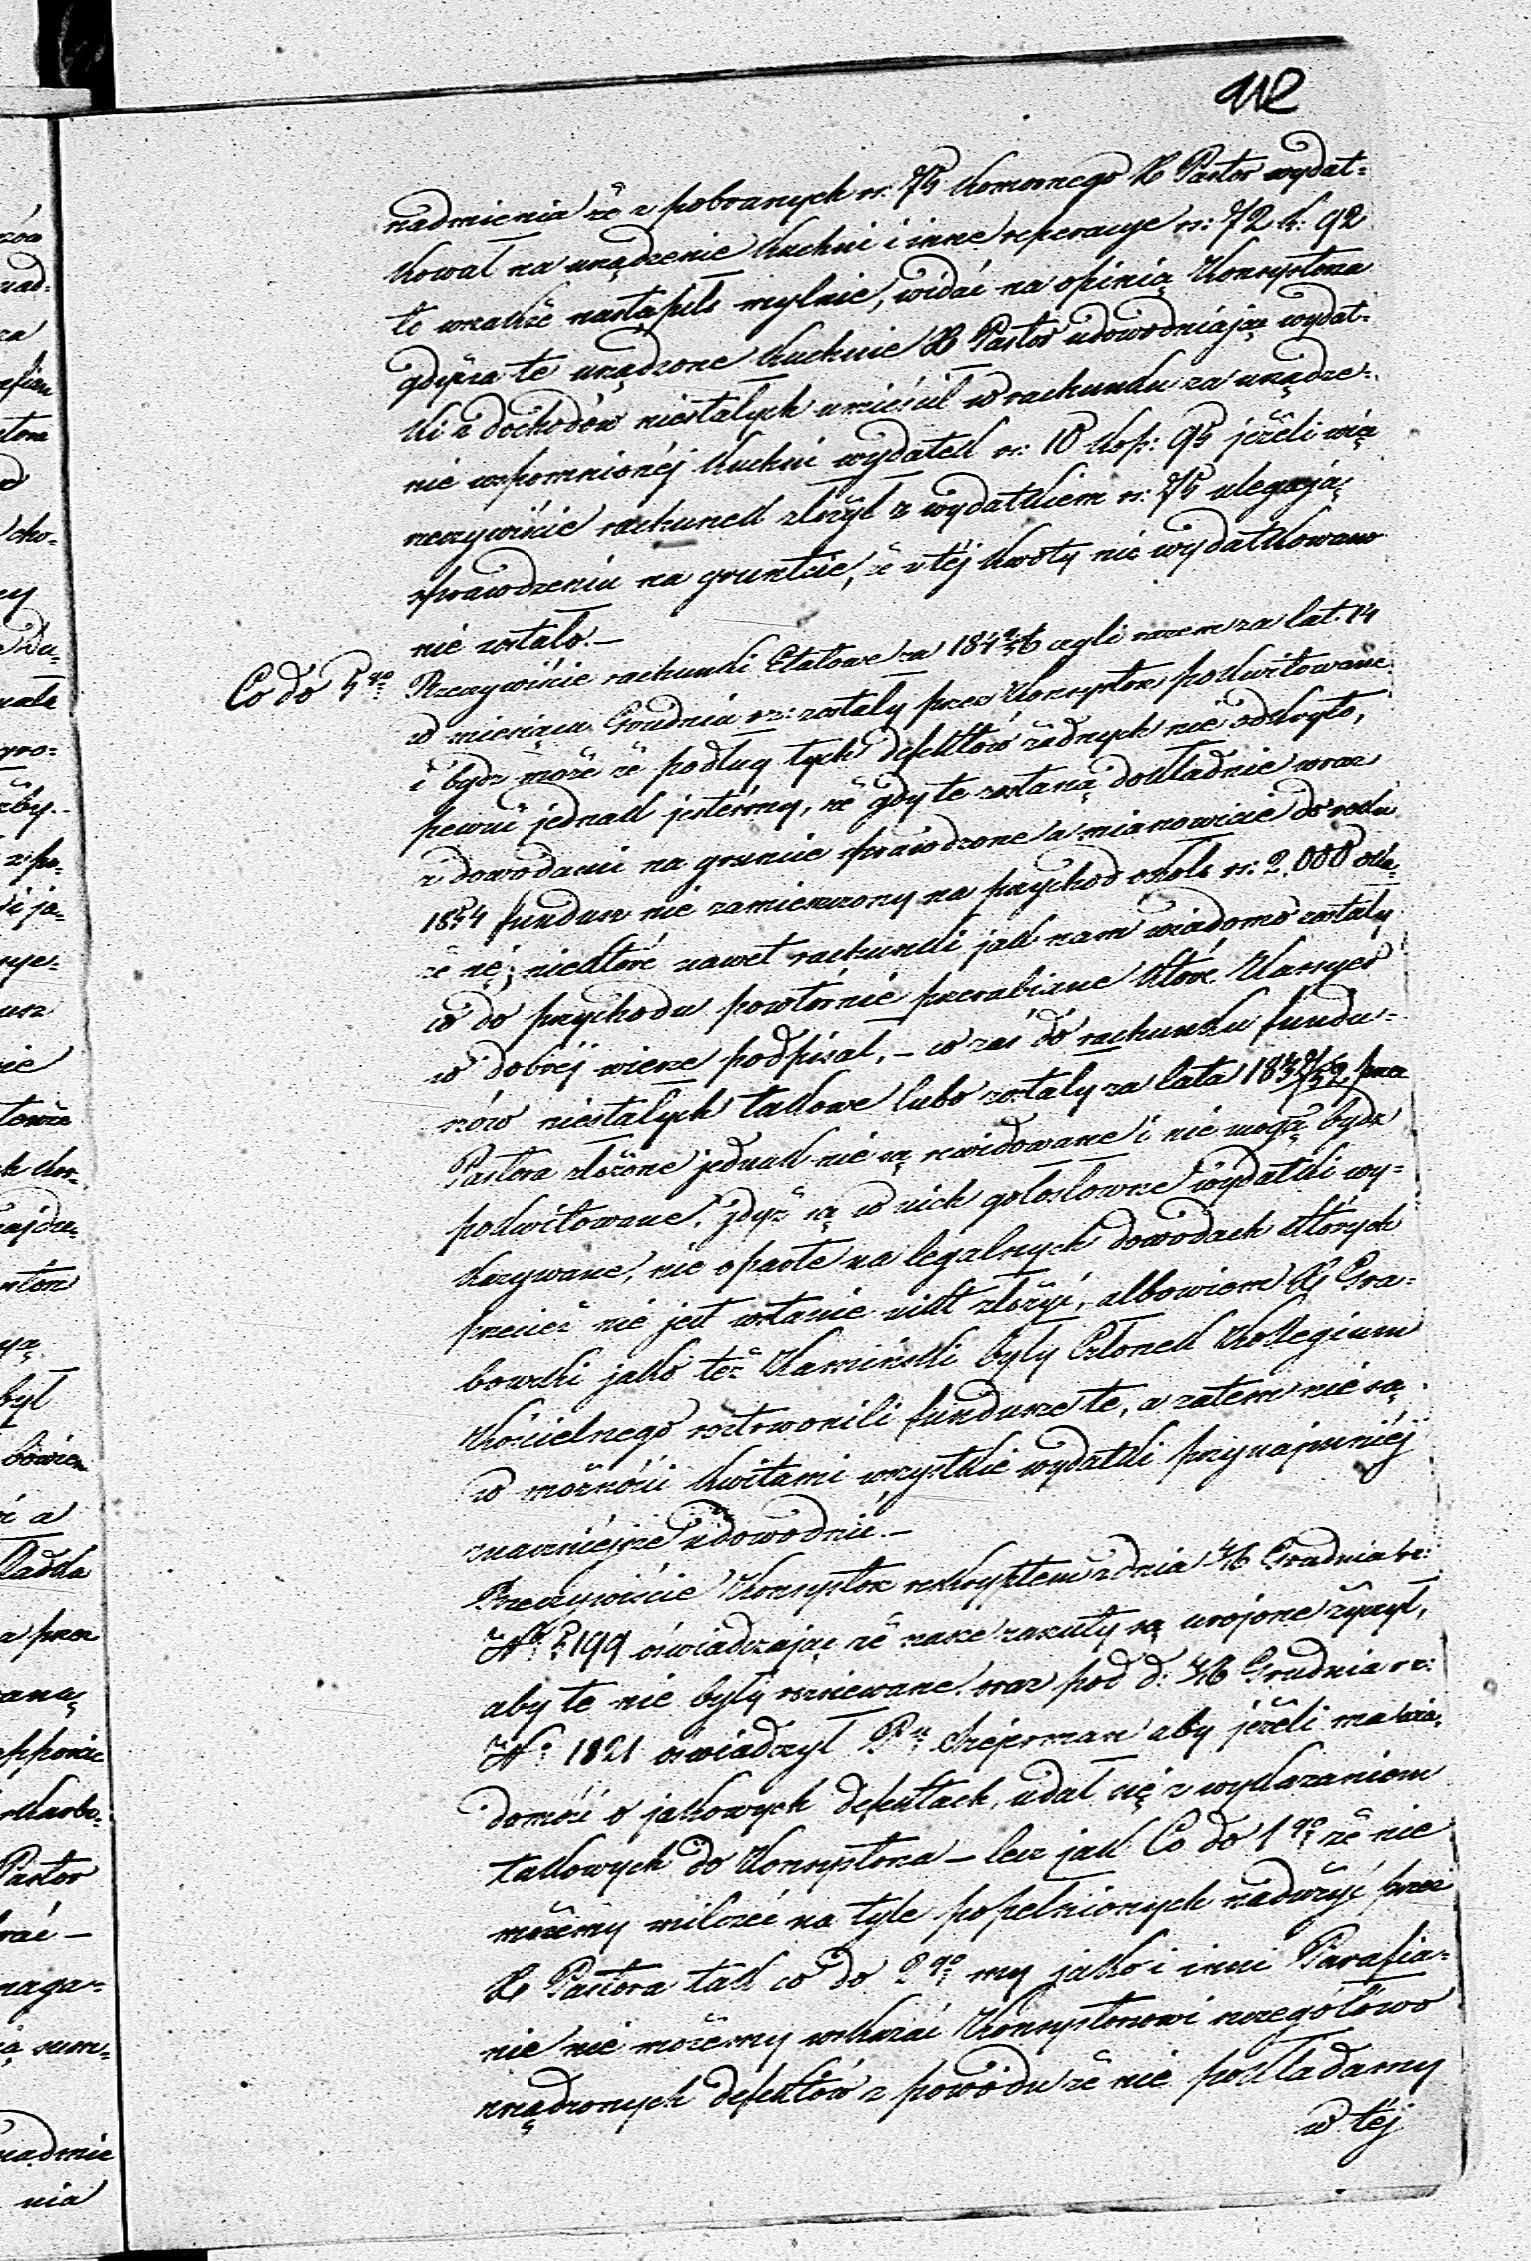 112
nadmienia że z pobranych rs: 75 komornego X Pastor wydat=
kował na urządzenie kuchni i inne reperacye rs: 72 k: 92
to wszakże nastąpiło mylnie, widać na opinią Konsystorza
gdyż za te urządzone kuchnie X Pastor udowodniając wydat=
ki z dochodów niestałych umieścił w rachunku za urządze=
nie wspomnionéj kuchni wydatek rs: 10 kop: 95 jeżeli więc
rzeczywiście rachunek złożył z wydatkiem rs: 75 ulegają
sprawdzeniu na gruntcie, że z téj kwoty nic wydatkowano
nie zostało.—
Co do 5go Rzeczywiście rachunki Etatowe za czyli razem za lat 14
w miesiącu Grudniu rz: zostały przez Konsystorz pokwitowane
i bydz może że podług tych defektów żadnych nie odkryto,
pewni jednak jesteśmy, że gdy te zostaną dokładnie wraz
z dowodami na gruncie sprawdzone a mianowicie do roku
1854 fundusz nie zamieszczony na przychod około rs: 2.000 oka=
że się; niektóre nawet rachunki jak nam wiadomo zostały
co do przychodu powtórnie przerabiane które Kassyer
w dobréj wierze podpisał,— co zaś do rachunku fundu=
szów niestałych takowe lubo zostały za lata przez
Pastora złożone jednak nie są rewidowane i nie mogą bydz
pokwitowane, gdyż są w nich gołosłowne wydatki wy=
kazywane, nie oparte na legalnych dowodach których
przecież nie jest wstanie nikt złożyć, albowiem X Gra=
bowski jako też Kamiński były Członek Kollegium
Kościelnego roztrwonili fundusze te, a zatem nie są
w możności kwitami wszystkie wydatki przynajmniéj
znaczniejsze udowodnić.—
Rzeczywiście Konsystorz reskryptem z dnia Grudnia rz:
oświadczając że nasze zarzuty są urojone życzył,
aby te nie były rozsiewane oraz pod d: Grudnia rz:
No 1821 oświadczył Pu aby jeżeli ma wia=
domość o jakowych defektach, udał się z wykazaniem
takowych do Konsystorza – lecz jak Co do 1go że nie
możemy milczeć na tyle popełnionych nadużyć przez
X Pastora tak co do 2go my jako i inni Parafia=
nie nie możemy wskazać Konsystorzowi szczegółowo
urządzonych defektów z powodu że nie posiadamy
w téj